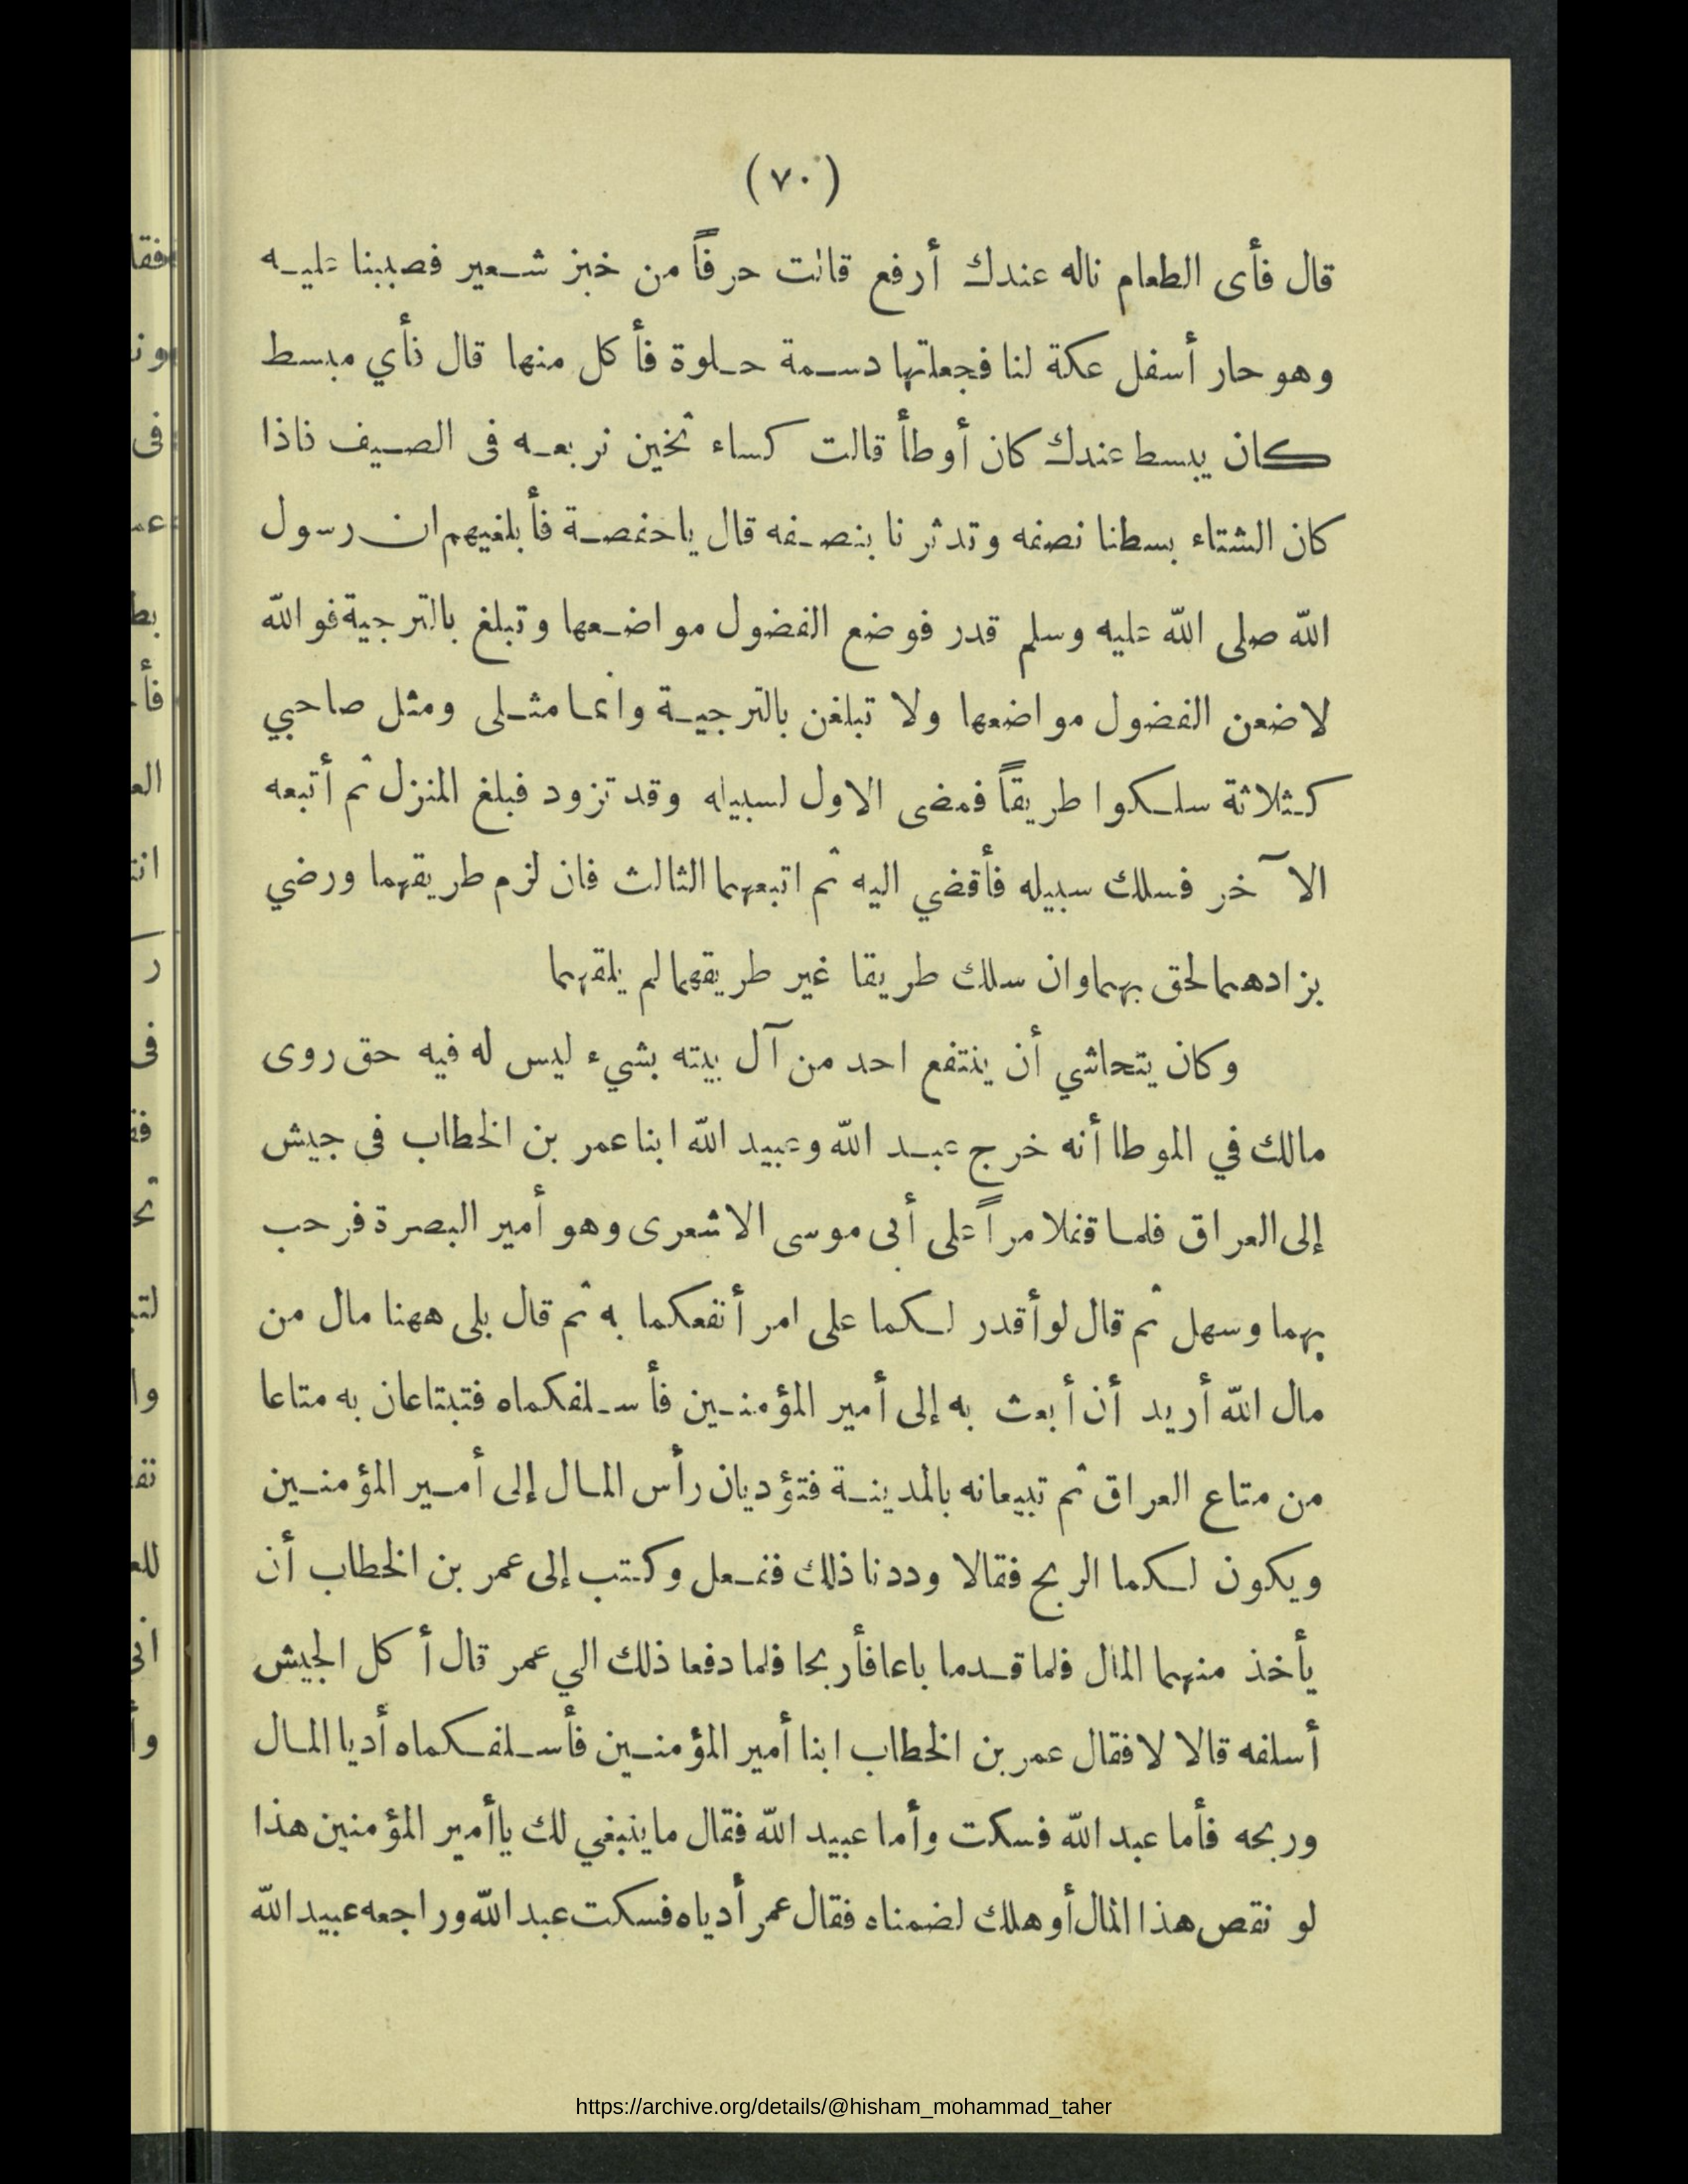 (٧٠)
قال فأى الطعام ناله عندك أرفع قالت حرفاً من خبز شعير فصببنا عليه
وهو حار أسفل عكة لنا فجعلتها دسمة حلوة فأكل منها قال فأي مبسط
كان يبسط عندك كان أوطأ قالت كساء ثخين نربعه فى الصيف فاذا
كان الشتاء بسطنا نصفه وتدثرنا بنصفه قال ياحفصة فأبلغيهم ان رسول
الله صلى الله عليه وسلم قدر فوضع الفضول مواضعها وتبلغ بالترجية فوالله
لاضعن الفضول مواضعها ولا تبلغن بالترجية وانما مثلى ومثل صاحبي
كثلاثة سلكوا طريقاً فمضى الاول لسبيله وقد تزود فبلغ المنزل ثم أتبعه
الآخر فسلك سبيله فأقضي اليه ثم اتبعهما الثالث فان لزم طريقهما ورضي
بزادهما لحق بهما وان سلك طريقا غير طريقهما لم يلقهما
وكان يتحاشي أن ينتفع احد من آل بيته بشيء ليس له فيه حق روى
مالك في الموطا أنه خرج عبد الله وعبيد الله ابنا عمر بن الخطاب فى جيش
إلى العراق فلما قفلا مراً على أبى موسى الاشعرى وهو أمير البصرة فرحب
بهما وسهل ثم قال لو أقدر لكما على امر أنفعكما به ثم قال بلى ههنا مال من
مال الله أريد أن أبعث به إلى أمير المؤمنين فأسلفكماه فتبتاعان به متاعا
من متاع العراق ثم تبيعانه بالمدينة فتؤديان رأس المال إلى أمير المؤمنين
ويكون لكما الربح فقالا وددنا ذلك ففعل وكتب إلى عمر بن الخطاب أن
يأخذ منهما المال فلما قدما باعا فأربحا فلما دفعا ذلك الي عمر قال أكل الجيش
أسلفه قالا لا فقال عمر بن الخطاب ابنا أمير المؤمنين فأسلفكماه أديا المال
وربحه فأما عبد الله فسكت وأما عبيد الله فقال ماينبغي لك ياأمير المؤمنين هذا
لو نقص هذا المال أو هلك لضمناه فقال عمر أدياه فسكت عبد الله وراجعه عبيد الله
https://archive.org/details/@hisham_mohammad_taher